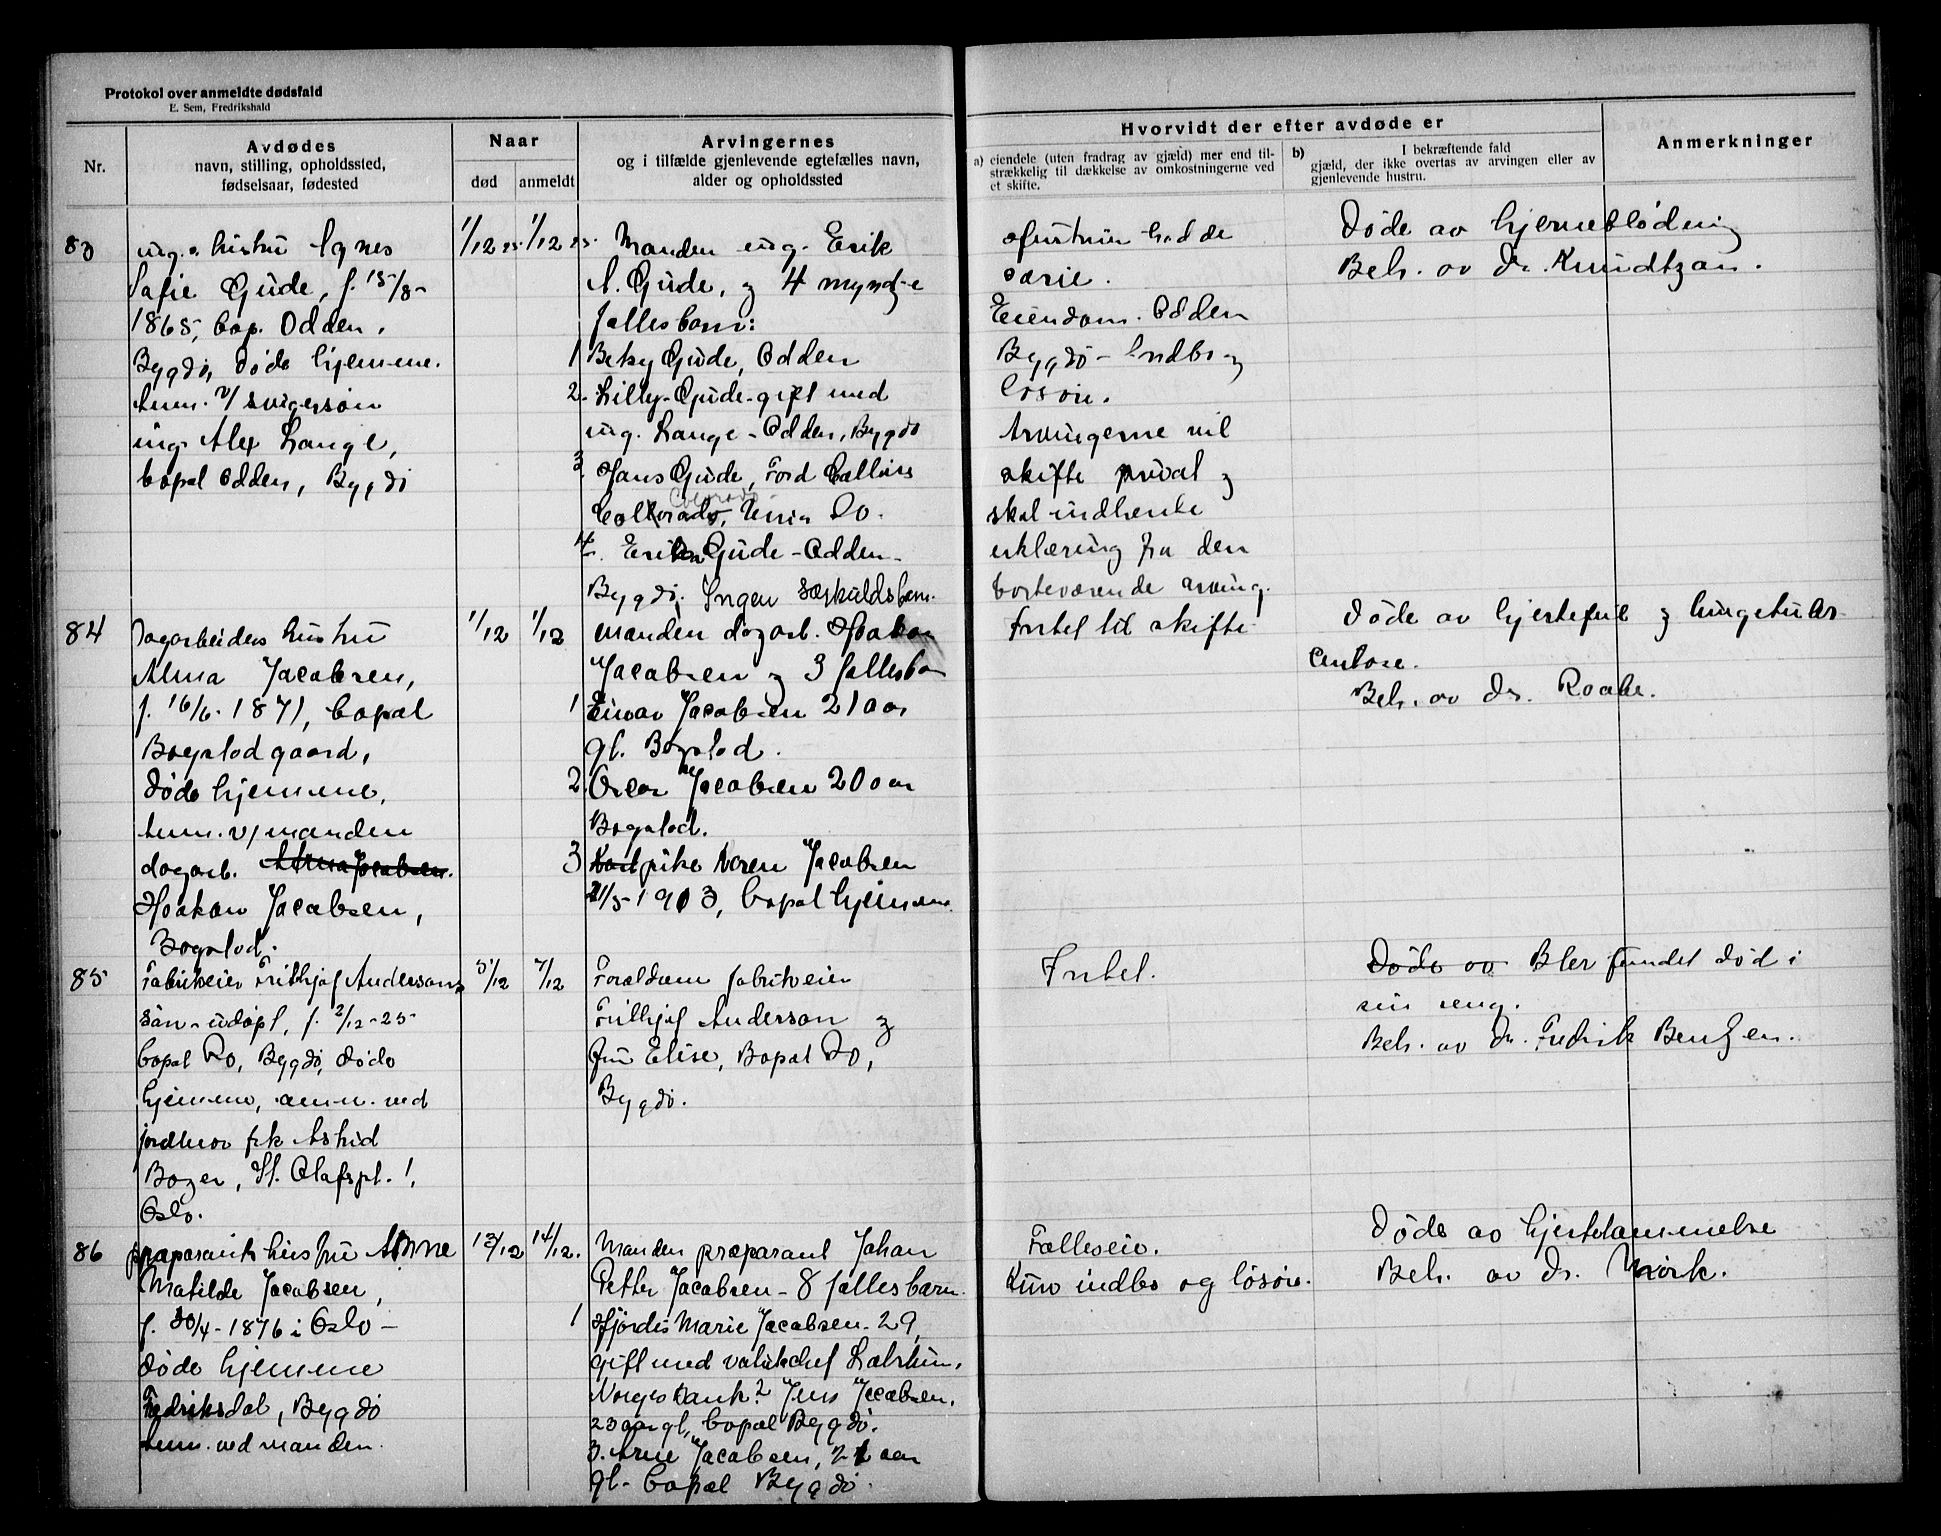 Protokol over anmeldte dødsfald
E. Sem, Fredrikshald
Nr.
Avdødes
navn, stilling, opholdssted,
fødselsaar, fødested
Naar
død
anmeldt
Arvingernes
og i tilfælde gjenlevende egtefælles navn,
alder og opholdssted
Hvorvidt der efter avdøde er
a) eiendele (uten fradrag av gjæld) mer end til-
strækkelig til dækkelse av omkostningerne ved
et skifte.
b) I bekræftende fald
gjæld, der ikke overtas av arvingen eller av
gjenlevende hustru.
Anmerkninger
83
ing.s hustru Agnes
Sofie Gude, f. 15/8-
1865, bop. Odden,
Bygdø, døde hjemme.
Anm. v/ svigersøn
ing. Alex Lange,
bopæl Odden, Bygdø
1/12 25
1/12 25.
Manden ing. Erik
A. Gude, og 4 myndige
fællesbarn:
1 Beky Gude, Odden
2. Lilly Gude - gift med
ing. Lange - Odden, Bygdø
3 Hans Gude, Ford Collins
Colorado
4. Erika Gude - Odden -
Bygdø. Ingen særkuldsbarn.
Hustruen hadde
særeie.
Eiendom. Odden
Bygdø - Indbo og
løsøre.
Arvingerne vil
skifte privat og
skal indhente
erklæring fra den
borteværende arving.
Døde av hjerneblødning
Beh. av Dr. Knudtzon.
84
Dagarbeiders hustru
Alma Jacobsen,
f. 16/6-1871, bopæl
Bogstad gaard,
døde hjemme,
Anm. v/ manden
dagarb. Alma Jacobsen.
Haakon Jacobsen,
Bogstad.
1/12
1/12
Manden dagarb. Haakon
Jacobsen og 3 fællesbarn
1 Einar Jacobsen 21 aar
gl. Bogstad.
2. Oscar Jacobsen 20 aar
Bogstad.
3 pike Karen Jacobsen
21/5-1903, bopæl hjemme
Intet til skifte
Døde av hjertefeil og lungetuber-
culose.
Beh. av Dr. Raabe.
85
Fabrikeier Frithjof Andersons
søn - udøpt, f. 2/12-25-
bopæl Ro, Bygdø, døde
hjemme, anm. ved
jordmor frk Astrid
Boger, St. Olafspl. 1,
Oslo.
5/12
7/12
Forældrene fabrikeier
Frithjof Anderson og
fru Elise, Bopæl Ro,
Bygdø.
Intet.
Døde av Blev fundet død i
sin seng.
Beh. av Dr. Fredrik Bentzen.
86
præparants hustru Anna
Matilde Jacobsen,
f. 30/4-1876 i Oslo -
døde hjemme
Fredriksdal, Bygdø
Anm. ved manden.
13/12
14/12.
Manden præparant Johan
Petter Jacobsen - 8 fællesbarn.
1 Hjørdis Marie Jacobsen - 29,
gift med
Norges Bank. 2 Jens Jacobsen,
23 aar gl, bopæl Bygdø.
3. Arne Jacobsen, 21 aar
gl - bopæl Bygdø.
Fælleseie.
Kun indbo og løsøre.
Døde av hjertelammelse
Beh. av Dr. Mørk.